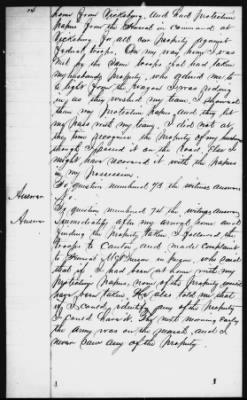 home from Vicksburg, and had protection
papers from the General in command at
Vicksburg for all our property against
Federal troops. On my way home I was
met by the same troops that had taken
my husbands property, who ordered me to
to light from the wagon I was riding
in as they wished my team. I showed
them my protection papers and they let
me pass with my team. I did not at
that time recognize the property of my husband
though I passed it on the road. Else I
might have recovered it with the papers
in my possession.
To question numbered 73 the witness answers
Answer
To question numbered 74 the witness answers
Answer
Immediately after my arrival home and
finding the property taken I followed the
troops to Canton, and made complaint
to General McPherson in person, who said
that if I had been at home with my
protection papers, none of the property would
have been taken. He also told me that
if I could identify any of the property
I could have it. The next morning early
the army was on the march, and I
never saw any of the property.